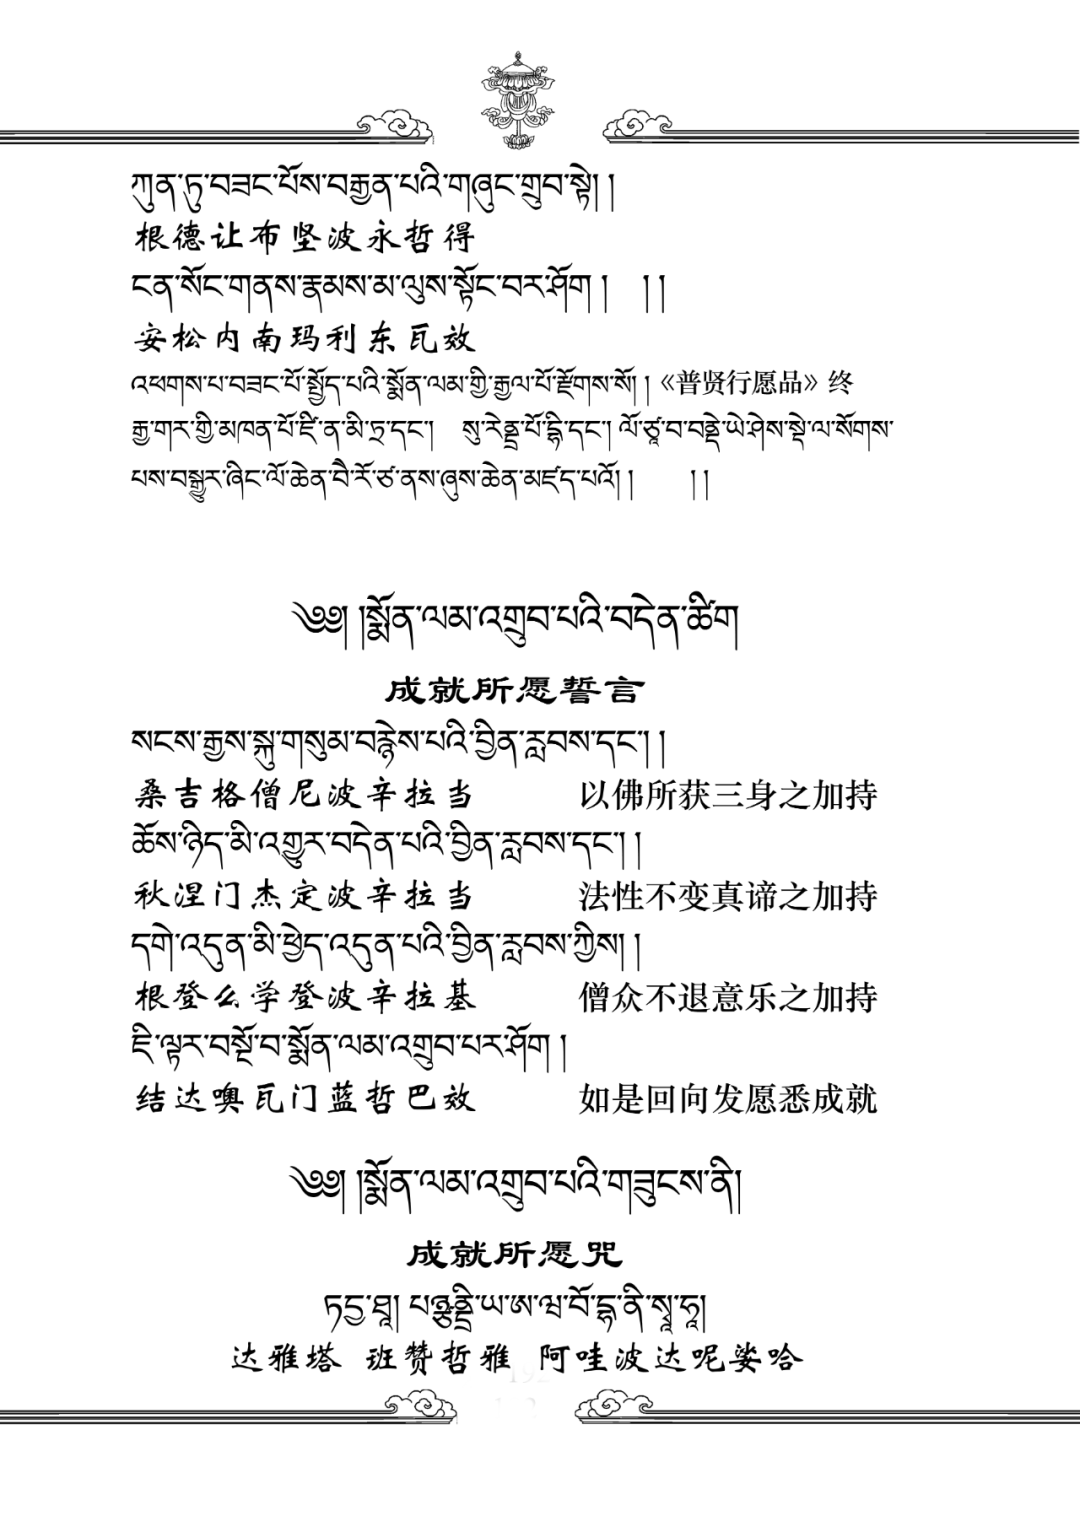 ཀུན་ཏུ་བཟང་པོས་བརྒྱན་པའི་གཞུང་གྲུབ་སྟེ། །
根德让布坚波永哲得
ངན་སོང་གནས་རྣམས་མ་ལུས་སྟོང་བར་ཤོག །  ། །
安松内南玛利东瓦效
འཕགས་པ་བཟང་པོ་སྤྱོད་པའི་སྨོན་ལམ་གྱི་རྒྱལ་པོ་རྫོགས་སོ། །《普贤行愿品》终
རྒྱ་གར་གྱི་མཁན་པོ་ཛི་ན་མི་ཏྲ་དང་། སུ་རེནྡྲ་བོ་དྷི་དང་། ལོ་ཙཱ་བ་བནྡེ་ཡེ་ཤེས་སྡེ་ལ་སོགས་
པས་བསྒྱུར་ཞིང་ལོ་ཆེན་བཻ་རོ་ཙ་ནས་ཞུས་ཆེན་མཛད་པའོ། །  ། །
༄༅། །སྨོན་ལམ་འགྲུབ་པའི་བདེན་ཚིག
成就所愿誓言
སངས་རྒྱས་སྐུ་གསུམ་བརྙེས་པའི་བྱིན་རླབས་དང་། །
桑吉格僧尼波辛拉当 以佛所获三身之加持
ཆོས་ཉིད་མི་འགྱུར་བདེན་པའི་བྱིན་རླབས་དང་། །
秋涅门杰定波辛拉当 法性不变真谛之加持
དགེ་འདུན་མི་ཕྱེད་འདུན་པའི་བྱིན་རླབས་ཀྱིས། །
根登么学登波辛拉基 僧众不退意乐之加持
ཇི་ལྟར་བསྔོ་བ་སྨོན་ལམ་འགྲུབ་པར་ཤོག །
结达噢瓦门蓝哲巴效 如是回向发愿悉成就
༄༅། །སྨོན་ལམ་འགྲུབ་པའི་གཟུངས་ནི།
成就所愿咒
ཏདྱ་ཐཱ། པཉྩནྡྲི་ཡ་ཨ་ཝ་བོ་དྷ་ནི་སྭཱ་ཧཱ།
达雅塔 班赞哲雅 阿哇波达呢娑哈